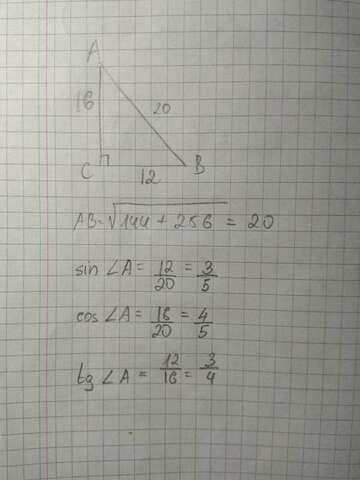 A
16
20
C
12
B
AB=√144 + 256 = 20
sin ∠A = 12/20 = 3/5
cos ∠A = 16/20 = 4/5
tg ∠A = 12/16 = 3/4